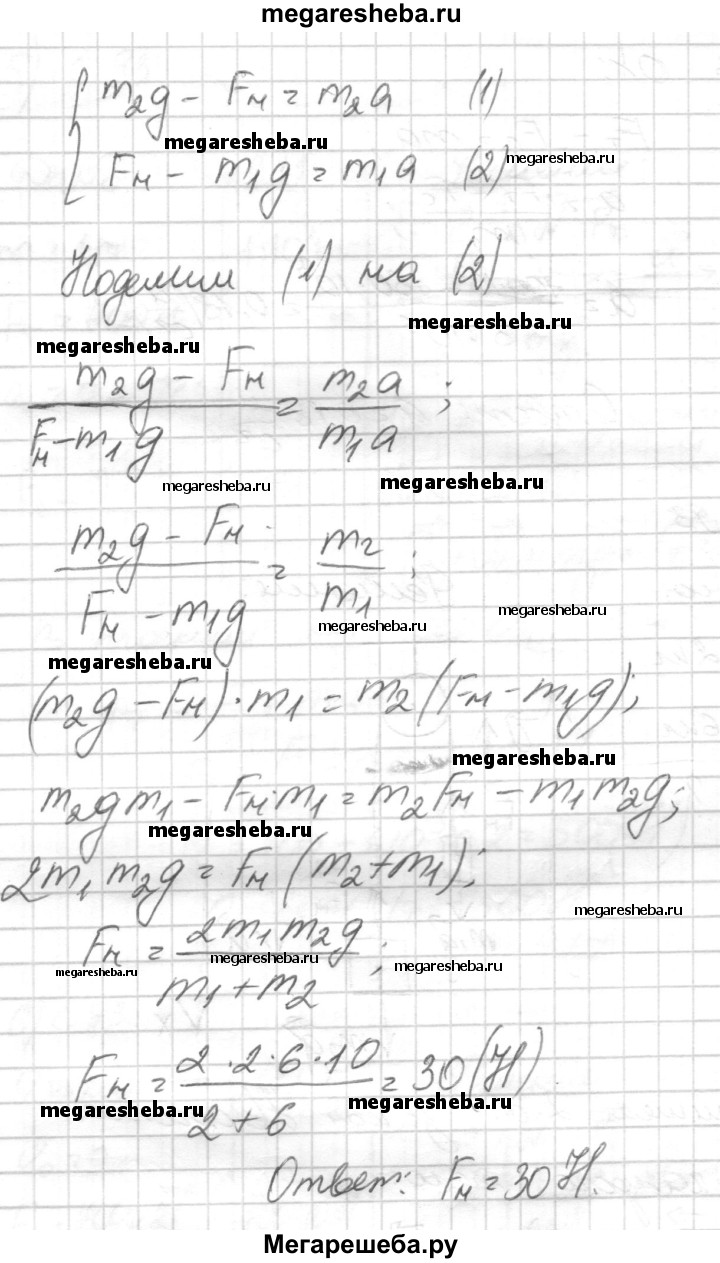 megaresheba.ru
m₂g - Fн = m₂a (1)
megaresheba.ru
Fн - m₁g = m₁a (2) megaresheba.ru
Поделим (1) на (2)
megaresheba.ru
megaresheba.ru
(m₂g - Fн)/(Fн - m₁g) = m₂a/m₁a ;
megaresheba.ru megaresheba.ru
(m₂g - Fн)/(Fн - m₁g) = m₂/m₁ ;
megaresheba.ru
megaresheba.ru
megaresheba.ru
(m₂g - Fн)·m₁ = m₂(Fн - m₁g);
megaresheba.ru
m₂gm₁ - Fн·m₁ = m₂Fн - m₁m₂g;
megaresheba.ru
2m₁m₂g = Fн(m₂+m₁);
megaresheba.ru
Fн = 2m₁m₂g/(m₁+m₂) ;
megaresheba.ru megaresheba.ru megaresheba.ru
Fн = (2·2·6·10)/(2+6) = 30(Н)
megaresheba.ru megaresheba.ru
Ответ: Fн = 30Н.
Мегарешеба.ру